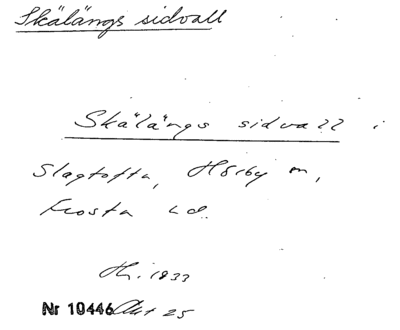 Skälängs sidvall
Skälängs sidvall i
Slagtofta, Hörby m,
Frosta hd.
Hi. 1833
Nr 10446 Akt 25